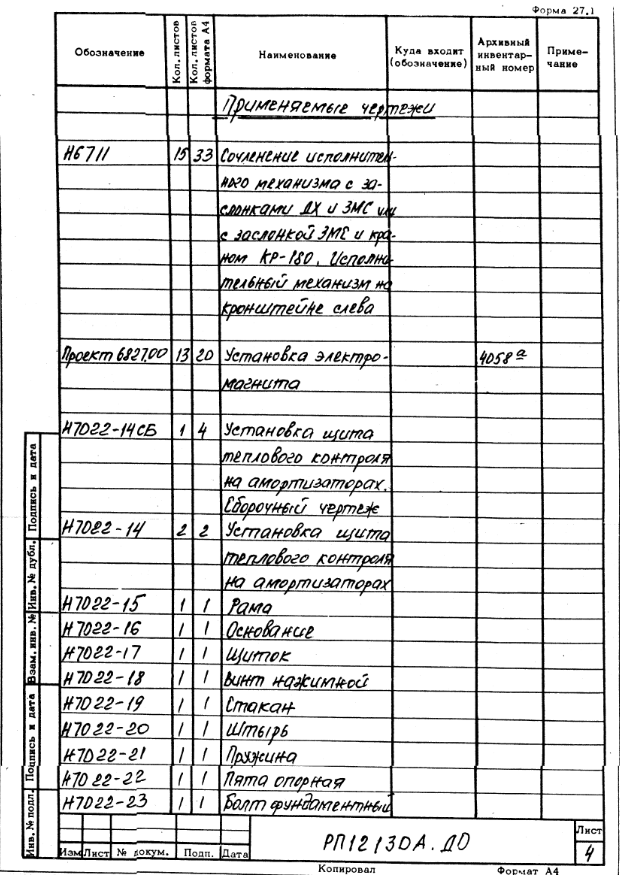 Форма 27.1
Обозначение Кол. листов Кол. листов формата А4 Наименование Куда входит (обозначение) Архивный инвентар- ный номер Приме- чание
Применяемые чертежи
Н6711 15 33 Сочленение исполнитель-
ного механизма с за-
слонками ДХ и ЗМС или
с заслонкой ЗМС и кра-
ном КР-180. Исполни-
тельный механизм на
кронштейне слева
Проект 682700 13 20 Установка электро- 4058а
магнита
Н7022-14СБ 1 4 Установка щита
теплового контроля
на амортизаторах.
Сборочный чертеж
Н7022-14 2 2 Установка щита
теплового контроля
на амортизаторах
Н7022-15 1 1 Рама
Н7022-16 1 1 Основание
Н7022-17 1 1 Щиток
Н7022-18 1 1 Винт нажимной
Н7022-19 1 1 Стакан
Н7022-20 1 1 Штырь
Н7022-21 1 1 Пружина
Н7022-22 1 1 Пята опорная
Н7022-23 1 1 Болт фундаментный
Инв. № подл. Подпись и дата Взам. инв. № Инв. № дубл. Подпись и дата
РП12130А.Д0
Лист
4
Изм Лист № докум. Подп. Дата
Копировал Формат А4